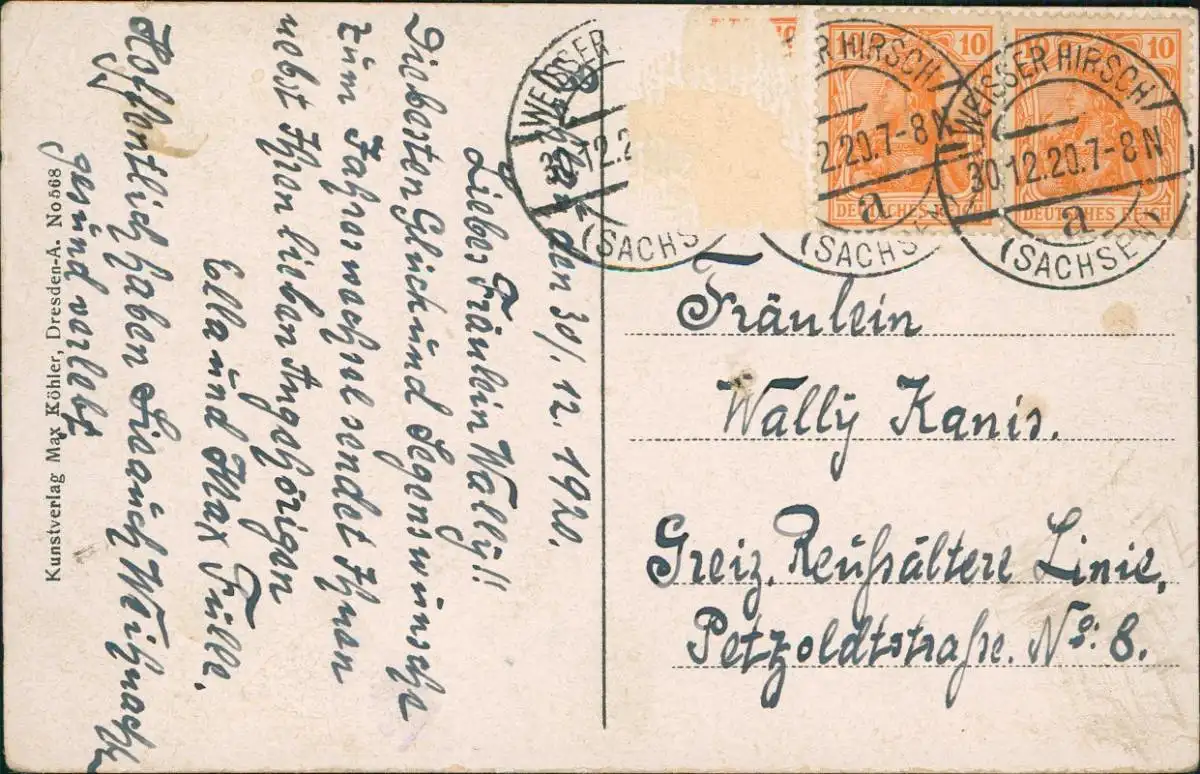 den 30/. 12. 1920.
Liebes Fräulein Wally!!
Die besten Glück und Segenswünsche
zum Jahreswechsel sendet Ihnen
nebst Ihren lieben Angehörigen
Ella und Max Tülle.
Hoffentlich haben Sie auch Weihnacht
gesund verlebt
Kunstverlag Max Köhler, Dresden-A. No 568
WEISSER
12.2
(SACHS
10
R HIRSCH
2.20.7-8 N
DEUTSCHES R
a
(SACHSE
10
WEISSER HIRSCH
30.12.20.7-8 N
DEUTSCHES REICH
a
(SACHSEN)
Fräulein
Wally Kanis.
Greiz. Reußältere Linie,
Petzoldtstraße. No: 8.